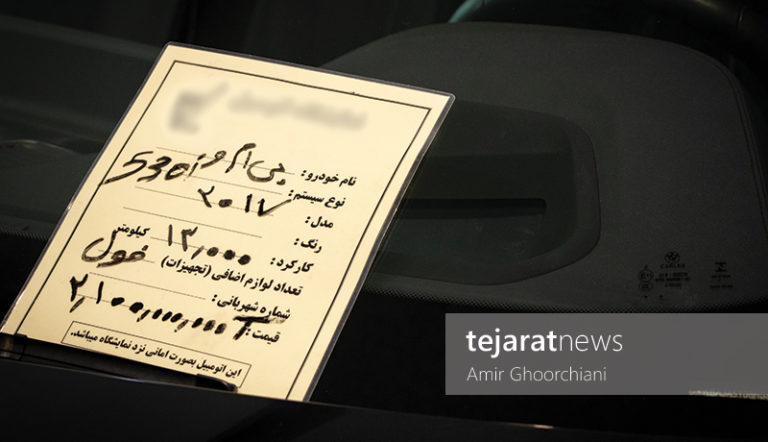 نام خودرو: بی ام و
نوع سیستم: 530i
مدل: ۲۰۱۷
رنگ:
کارکرد: ۱۳,۰۰۰ کیلومتر
تعداد لوازم اضافی (تجهیزات) فول
شماره شهربانی:
قیمت: ۲,۱۰۰,۰۰۰,۰۰۰ T
این اتومبیل بصورت امانی نزد نمایشگاه میباشد.
tejaratnews
Amir Ghoorchiani